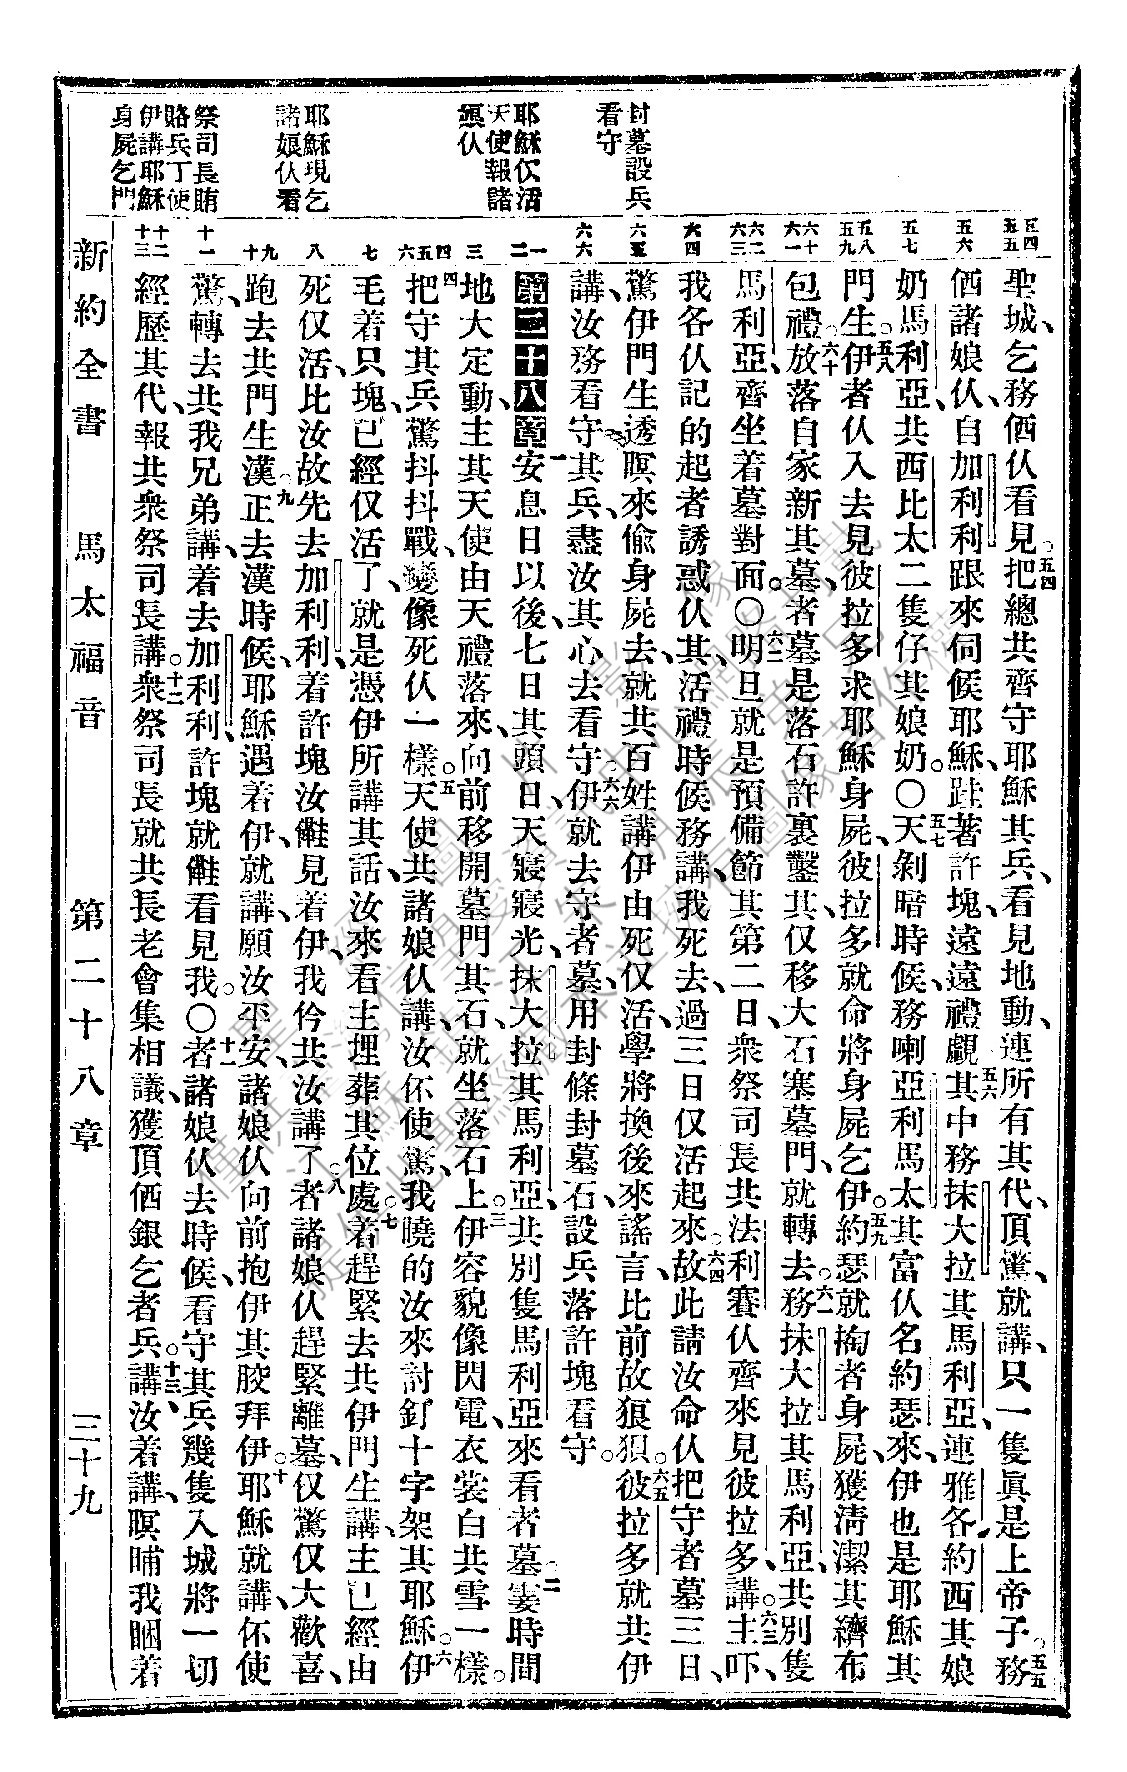 封墓設兵
看守
耶穌仅活
天使報諸
娘仈
耶穌現乞
諸娘仈看
祭司長賄
賂兵丁使
伊講耶穌
身屍乞門
五四
五五
五六
五七
五八
五九
六十
六一
六二
六三
六四
六五
六六
一
二
三
四
五
六
七
八
九
十
十一
十二
十三
聖城、乞務徆仈看見。五四把總共齊守耶穌其兵、看見地動、連所有其代、頂驚、就講、只一隻眞是上帝子。五五務
徆諸娘仈、自加利利跟來伺候耶穌、跬著許塊、遠遠禮覷。五六其中務抹大拉其馬利亞、連雅各約西其娘
奶馬利亞、共西比太二隻仔其娘奶。〇五七天剝暗時候、務喇亞利馬太其富仈名約瑟、來、伊也是耶穌其
門生。五八伊者仈入去見彼拉多求耶穌身屍、彼拉多就命將身屍乞伊。五九約瑟就掏者身屍、獲淸潔其纃布
包禮。六十放落自家新其墓、者墓是落石許裏鑿其、仅移大石塞墓門、就轉去。六一務抹大拉其馬利亞、共別隻
馬利亞、齊坐着墓對面。〇六二明旦就是預備節其第二日、衆祭司長共法利賽仈齊來見彼拉多講、主吓。六三
我各仈記的起者誘惑仈其、活禮時候務講、我死去、過三日仅活起來。六四故此請汝命仈把守者墓三日、
驚伊門生透暝來偷身屍去、就共百姓講、伊由死仅活、學將換後來謠言、比前故狼狽。六五彼拉多就共伊
講、汝務看守其兵、盡汝其心去看守。六六伊就去守者墓、用封條封墓石、設兵落許塊看守。
第二十八章一安息日以後、七日其頭日、天寢寢光、抹大拉其馬利亞、共別隻馬利亞來看者墓。二霎時間
地大定動、主其天使由天禮落來、向前移開墓門其石、就坐落石上。三伊容貌像閃電、衣裳白共雪一樣。
四把守其兵驚抖抖戰、變像死仈一樣。五天使共諸娘仈講、汝伓使驚、我曉的汝來討釘十字架其耶穌。六伊
毛着只塊、已經仅活了、就是憑伊所講其話、汝來看主埋葬其位處。七着趕緊去共伊門生講、主已經由
死仅活、比汝故先去加利利、着許塊汝𠖫見着伊、我仱共汝講了。八者諸娘仈趕緊離墓、仅驚仅大歡喜、
跑去共門生漢。九正去漢時候、耶穌遇着伊就講、願汝平安、諸娘仈向前抱伊其骹拜伊。十耶穌就講、伓使
驚、轉去共我兄弟講、着去加利利、許塊就𠖫看見我。〇十一者諸娘仈去時候、看守其兵幾隻入城、將一切
經歷其代、報共衆祭司長講。十二衆祭司長就共長老會集相議、獲頂徆銀乞者兵。十三講、汝着講、暝晡我睏着
新約全書 馬太福音 第二十八章 三十九